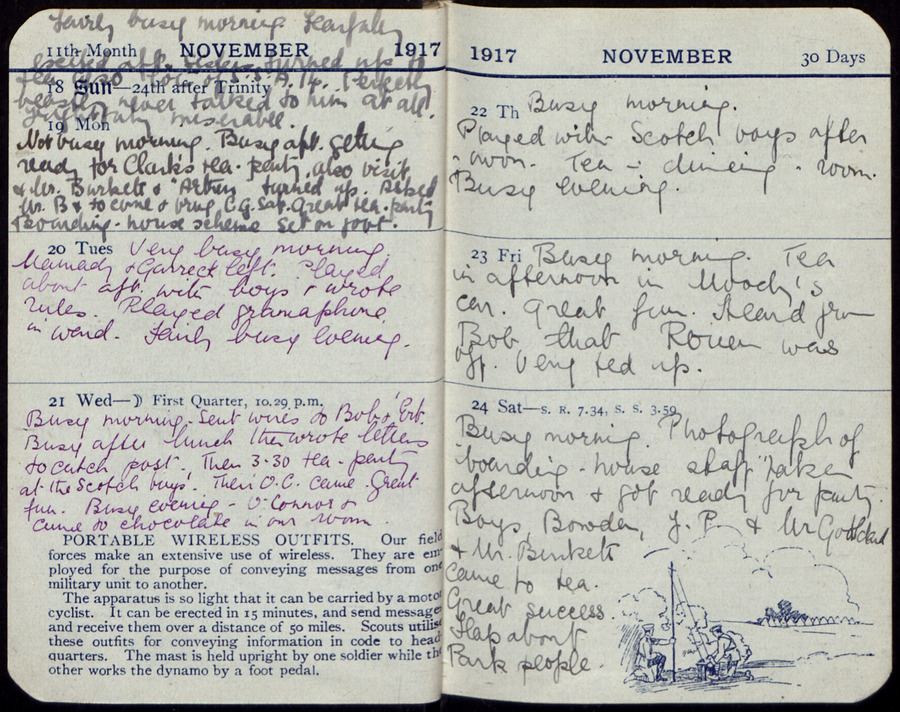 Fairly busy morning. Fearfully
11th Month NOVEMBER 1917
excited aft. turned up to
tea also
18 Sun—24th after Trinity Perfectly
beastly never talked to him at all
miserable.
19 Mon
Not busy morning. Busy aft. getting
ready for Clark's tea-party, also visit
& Mr. Burkett & turned up. Asked
Mr. B to come & bring C.G. Sat. Great tea-party
Boarding-house scheme set on foot.
20 Tues Very busy morning
& Garrett left. Played
about aft. with boys & wrote
rules. Played gramaphone
in ward. Fairly busy evening.
21 Wed—☽ First Quarter, 10.29 p.m.
Busy morning. Sent wires to Bob &
Busy after lunch then wrote letters
to catch post. Then 3.30 tea-party
at the Scotch boys'. Then O.C. came. Great
fun. Busy evening - O'Connor &
came to chocolate in our room.
PORTABLE WIRELESS OUTFITS. Our field
forces make an extensive use of wireless. They are em-
ployed for the purpose of conveying messages from one
military unit to another.
The apparatus is so light that it can be carried by a motor
cyclist. It can be erected in 15 minutes, and send messages
and receive them over a distance of 50 miles. Scouts utilise
these outfits for conveying information in code to head-
quarters. The mast is held upright by one soldier while the
other works the dynamo by a foot pedal.
1917 NOVEMBER 30 Days
22 Th Busy morning.
Played with Scotch boys after
-noon. Tea in dining-room.
Busy evening.
23 Fri Busy morning. Tea
in afternoon in Moody's
car. Great fun. Heard from
Bob that Rouen was
off. Very fed up.
24 Sat—S. R. 7.34, S. S. 3.59
Busy morning. Photograph of
boarding-house staff taken
afternoon & got ready for party.
Boys, Bowden, J.P. & Mr Goddard
& Mr. Burkett
came to tea.
Great success.
Flap about
Park people.